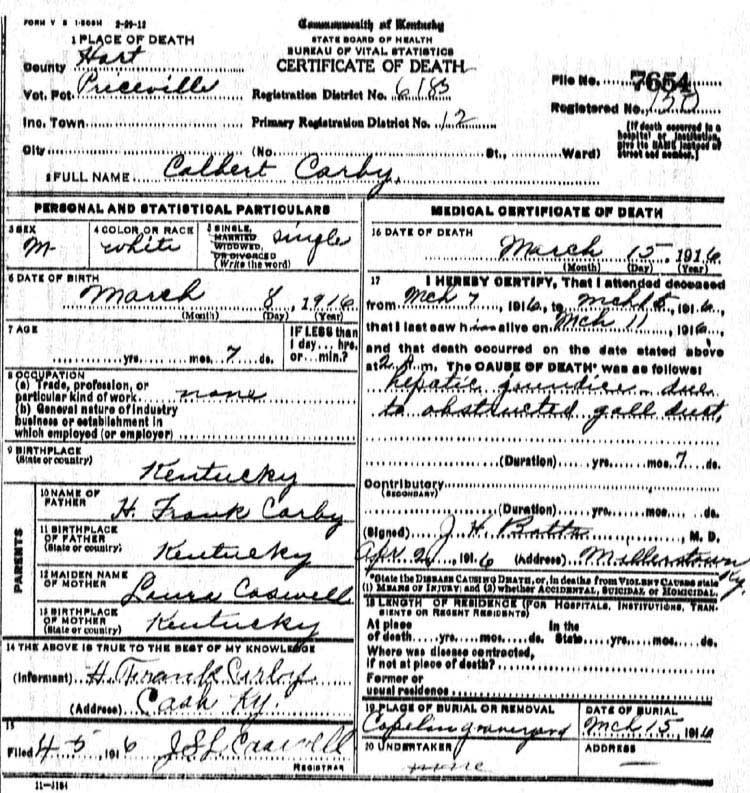 FORM V S 1-50SM 2-29-12
Commonwealth of Kentucky
STATE BOARD OF HEALTH
BUREAU OF VITAL STATISTICS
CERTIFICATE OF DEATH
1 PLACE OF DEATH
County Hart
Vot. Pct Priceville
Inc. Town
City
Registration District No. 6185
Primary Registration District No. 12
File No. 7654
Registered No. 150
(No. St., Ward)
(If death occurred in a hospital or institution, give its NAME instead of street and number.)
2 FULL NAME Colbert Carby.
PERSONAL AND STATISTICAL PARTICULARS
3 SEX M
4 COLOR OR RACE white
5 SINGLE, MARRIED WIDOWED, OR DIVORCED (Write the word) single
6 DATE OF BIRTH
March 8, 1916
(Month) (Day) (Year)
7 AGE
yrs. mos. 7 ds.
IF LESS than 1 day... hrs. or... min.?
8 OCCUPATION
(a) Trade, profession, or
particular kind of work none
(b) General nature of industry
business or establishment in
which employed (or employer)
9 BIRTHPLACE
(State or country) Kentucky
PARENTS
10 NAME OF FATHER H. Frank Carby
11 BIRTHPLACE OF FATHER (State or country) Kentucky
12 MAIDEN NAME OF MOTHER Laura Caswell
13 BIRTHPLACE OF MOTHER (State or country) Kentucky
14 THE ABOVE IS TRUE TO THE BEST OF MY KNOWLEDGE
(Informant) H. Frank Carby
(Address) Cash Ky.
15
Filed 4-5 1916 J S L Caswell
REGISTRAR
11-1184
MEDICAL CERTIFICATE OF DEATH
16 DATE OF DEATH
March 15, 1916
(Month) (Day) (Year)
17 I HEREBY CERTIFY, That I attended deceased
from Mch 7, 1916, to Mch 15, 1916,
that I last saw him alive on Mch 11, 1916,
and that death occurred on the date stated above
at 2 m. The CAUSE OF DEATH* was as follows:
hepatic jaundice due
to obstructed gall duct,
(Duration) yrs. mos. 7 ds.
Contributory
(SECONDARY)
(Duration) yrs. mos. ds.
(Signed) J. H. Botts, M. D.
Apr 2, 1916 (Address) Millerstown Ky.
*State the DISEASE CAUSING DEATH, or, in deaths from VIOLENT CAUSES state (1) MEANS OF INJURY; and (2) whether ACCIDENTAL, SUICIDAL or HOMICIDAL.
18 LENGTH OF RESIDENCE (FOR HOSPITALS, INSTITUTIONS, TRANSIENTS OR RECENT RESIDENTS)
At place In the
of death yrs. mos. ds. State yrs. mos. ds.
Where was disease contracted,
if not at place of death?
Former or
usual residence
19 PLACE OF BURIAL OR REMOVAL
Copelin graveyard
DATE OF BURIAL
Mch 15, 1916
20 UNDERTAKER
none
ADDRESS